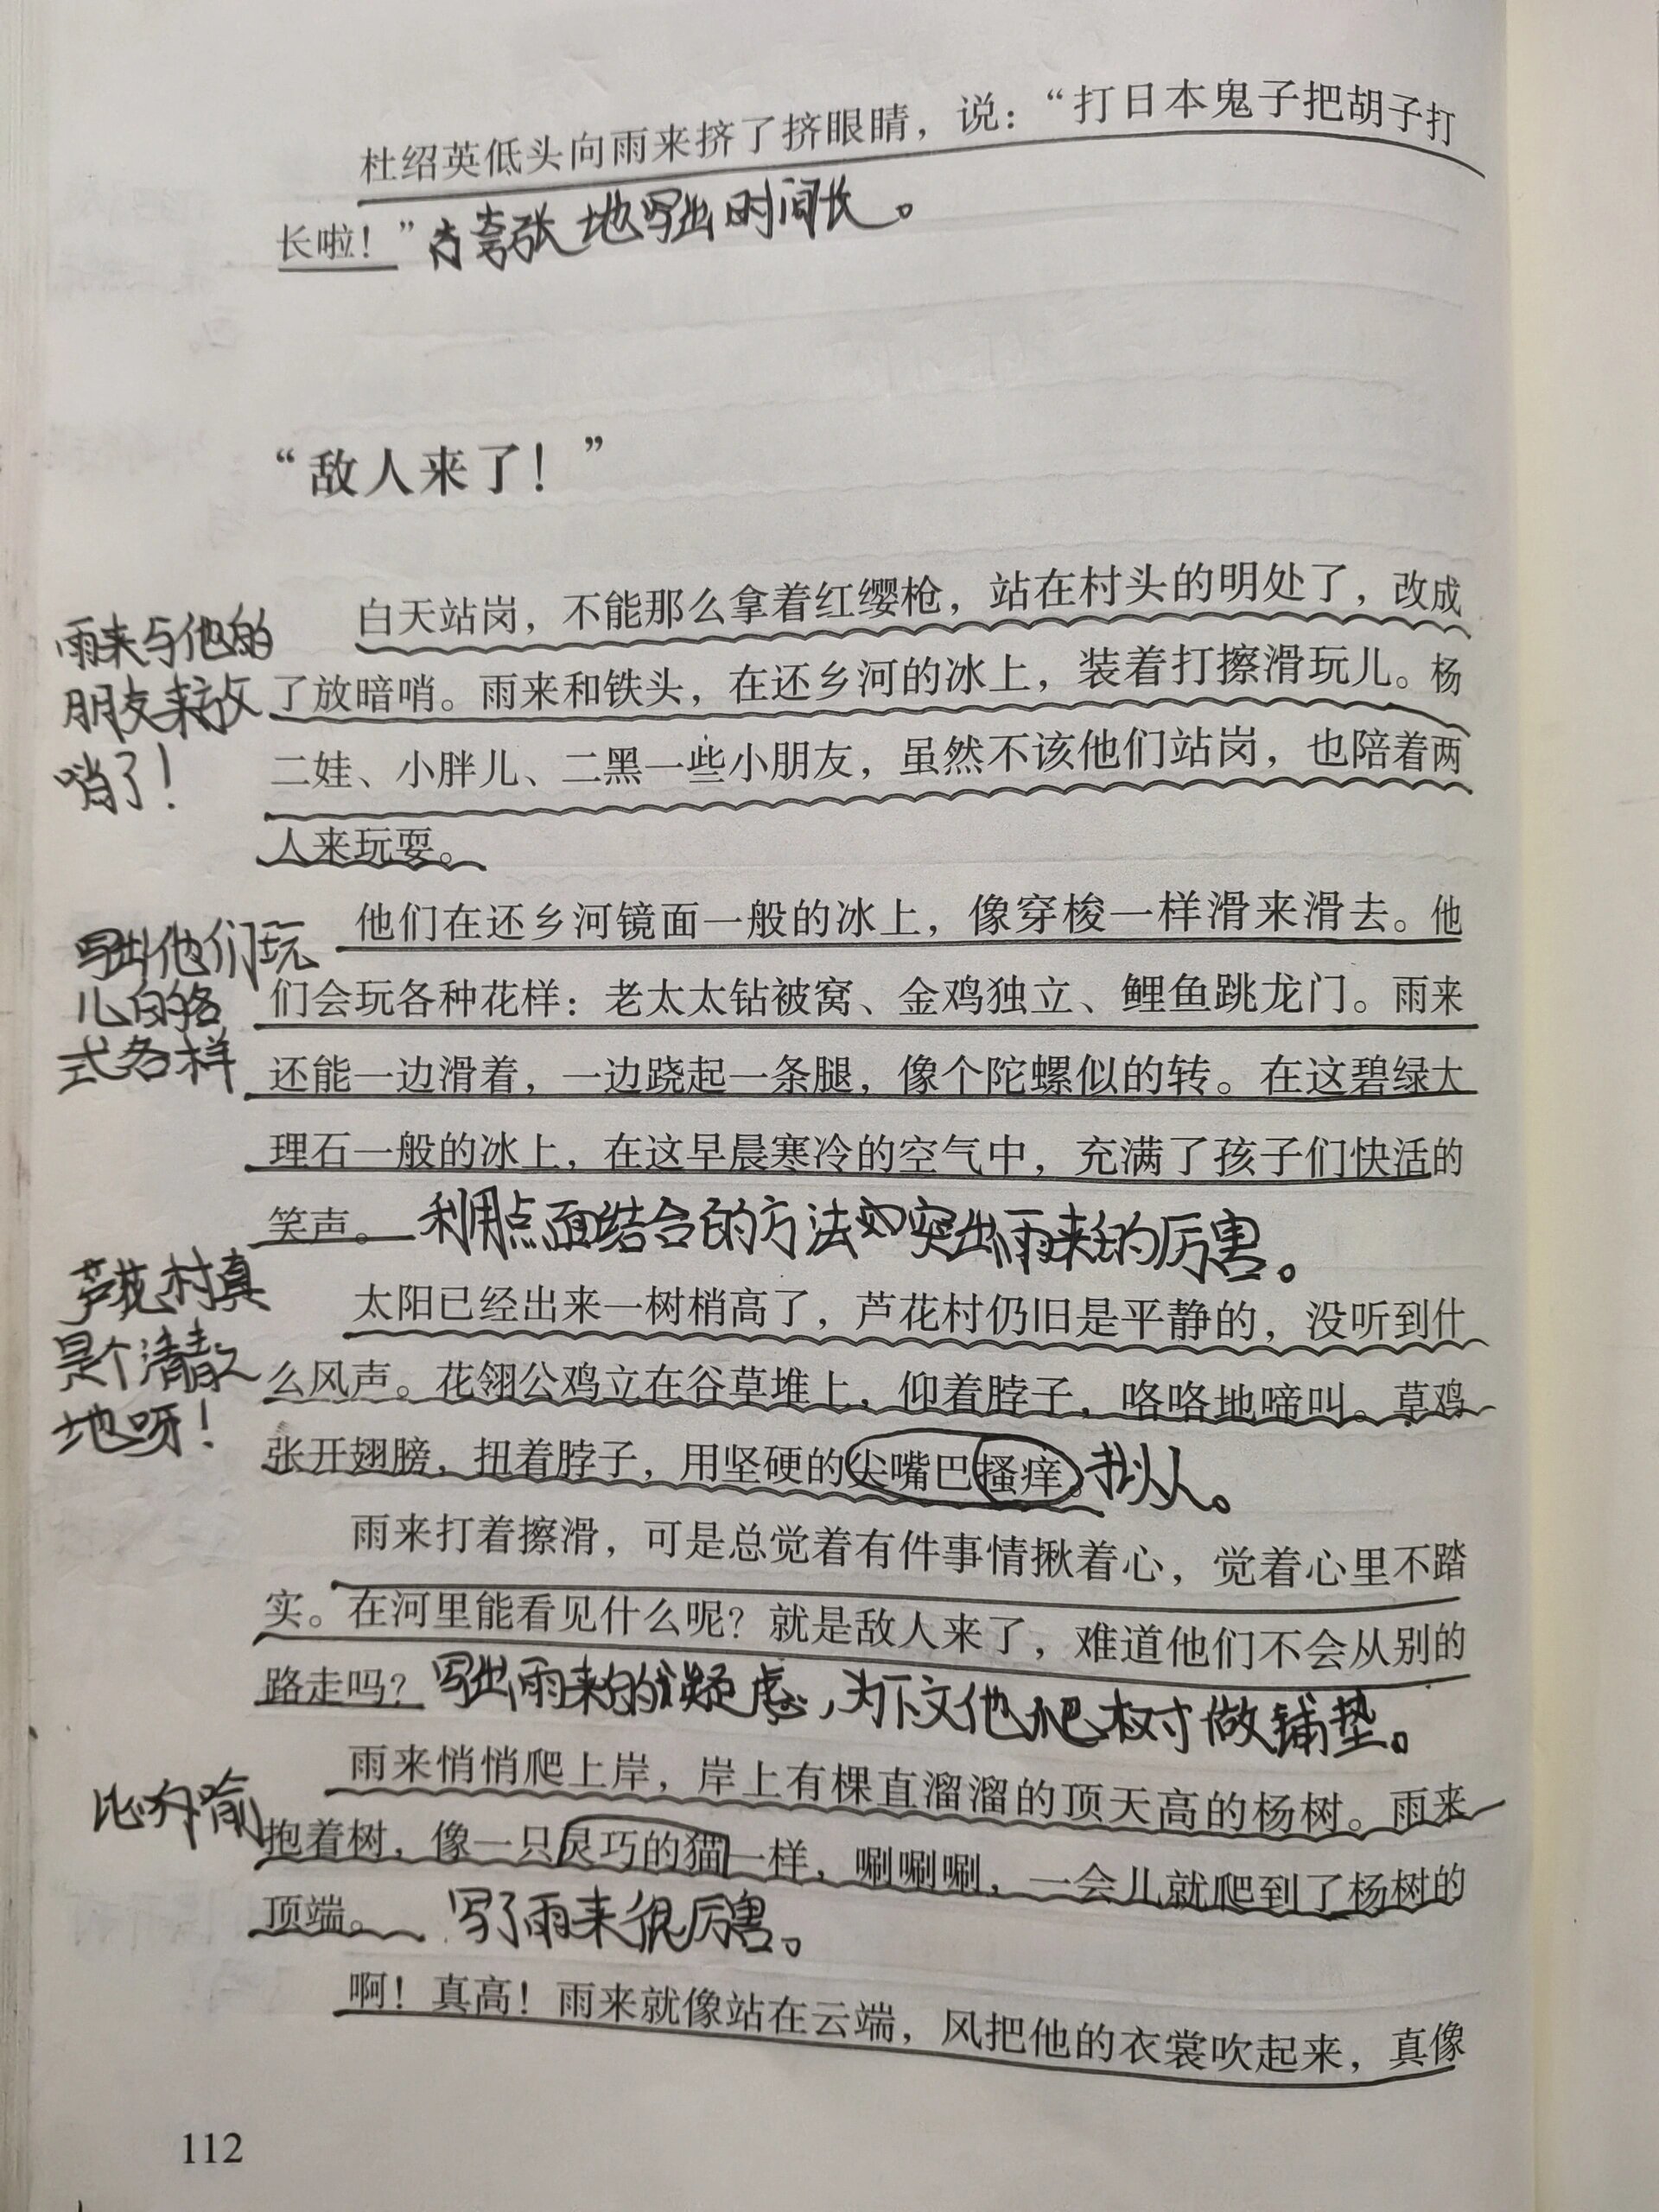 杜绍英低头向雨来挤了挤眼睛，说：“打日本鬼子把胡子打
长啦！”
夸张地写出时间长。
“敌人来了！”
雨来与他的
朋友来放
哨了！
白天站岗，不能那么拿着红缨枪，站在村头的明处了，改成
了放暗哨。雨来和铁头，在还乡河的冰上，装着打擦滑玩儿。杨
二娃、小胖儿、二黑一些小朋友，虽然不该他们站岗，也陪着两
人来玩耍。
写出他们玩
儿的各
式各样
他们在还乡河镜面一般的冰上，像穿梭一样滑来滑去。他
们会玩各种花样：老太太钻被窝、金鸡独立、鲤鱼跳龙门。雨来
还能一边滑着，一边跷起一条腿，像个陀螺似的转。在这碧绿大
理石一般的冰上，在这早晨寒冷的空气中，充满了孩子们快活的
笑声。
利用点面结合的方法突出雨来的厉害。
芦花村真
是个清静
地呀！
太阳已经出来一树梢高了，芦花村仍旧是平静的，没听到什
么风声。花翎公鸡立在谷草堆上，仰着脖子，咯咯地啼叫。草鸡
张开翅膀，扭着脖子，用坚硬的尖嘴巴搔痒。
拟人。
雨来打着擦滑，可是总觉着有件事情揪着心，觉着心里不踏
实。在河里能看见什么呢？就是敌人来了，难道他们不会从别的
路走吗？
写出雨来的疑虑，为下文他爬树做铺垫。
比喻
雨来悄悄爬上岸，岸上有棵直溜溜的顶天高的杨树。雨来
抱着树，像一只灵巧的猫一样，唰唰唰，一会儿就爬到了杨树的
顶端。
写了雨来很厉害。
啊！真高！雨来就像站在云端，风把他的衣裳吹起来，真像
112